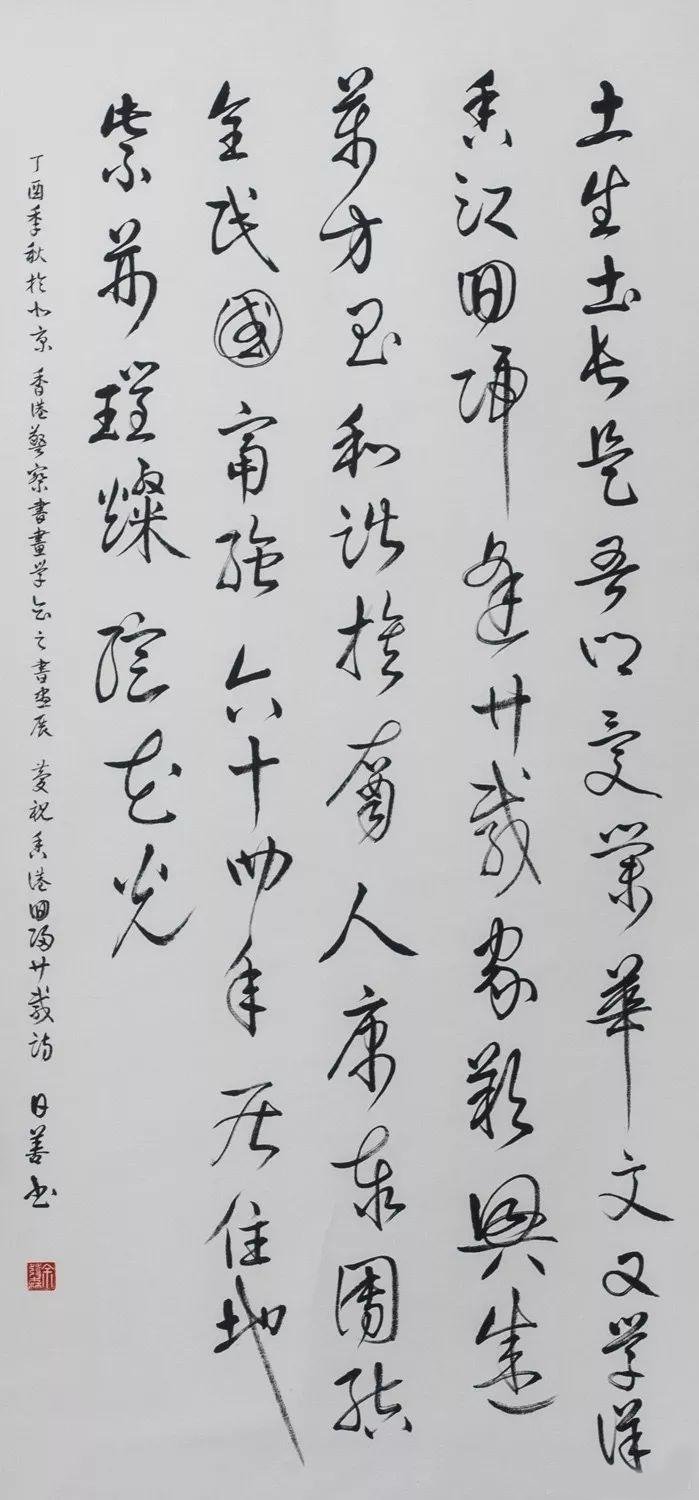 土生土長是吾鄉受業華文又学洋
香江回歸逢廿載家興
萬方昌和諧族裔人康泰團結
全民國富強六十四年居住地
紫荊璀燦綻花光
丁酉季秋於北京 香港警察書畫学会之書画展 慶祝香港回歸廿載詩 日善书